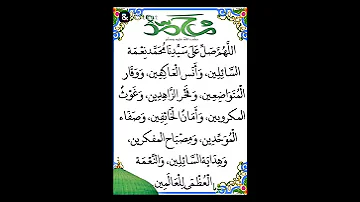 محمد
اللَّهُمَّ صَلِّ عَلَى سَيِّدِنَا مُحَمَّدٍ نِعْمَةِ
السَّائِلِينَ، وَأُنْسِ الْعَاكِفِينَ، وَوَقَارِ
الْمُتَوَاضِعِينَ، وَفَخْرِ الزَّاهِدِينَ، وَغَوْثِ
الْمَكْرُوبِينَ، وَأَمَانِ الْخَائِفِينَ، وَصَفَاءِ
الْمُوَحِّدِينَ، وَمِصْبَاحِ الْمُفَكِّرِينَ،
وَهِدَايَةِ السَّائِلِينَ، وَالنِّعْمَةِ
الْعُظْمَى لِلْعَالَمِينَ